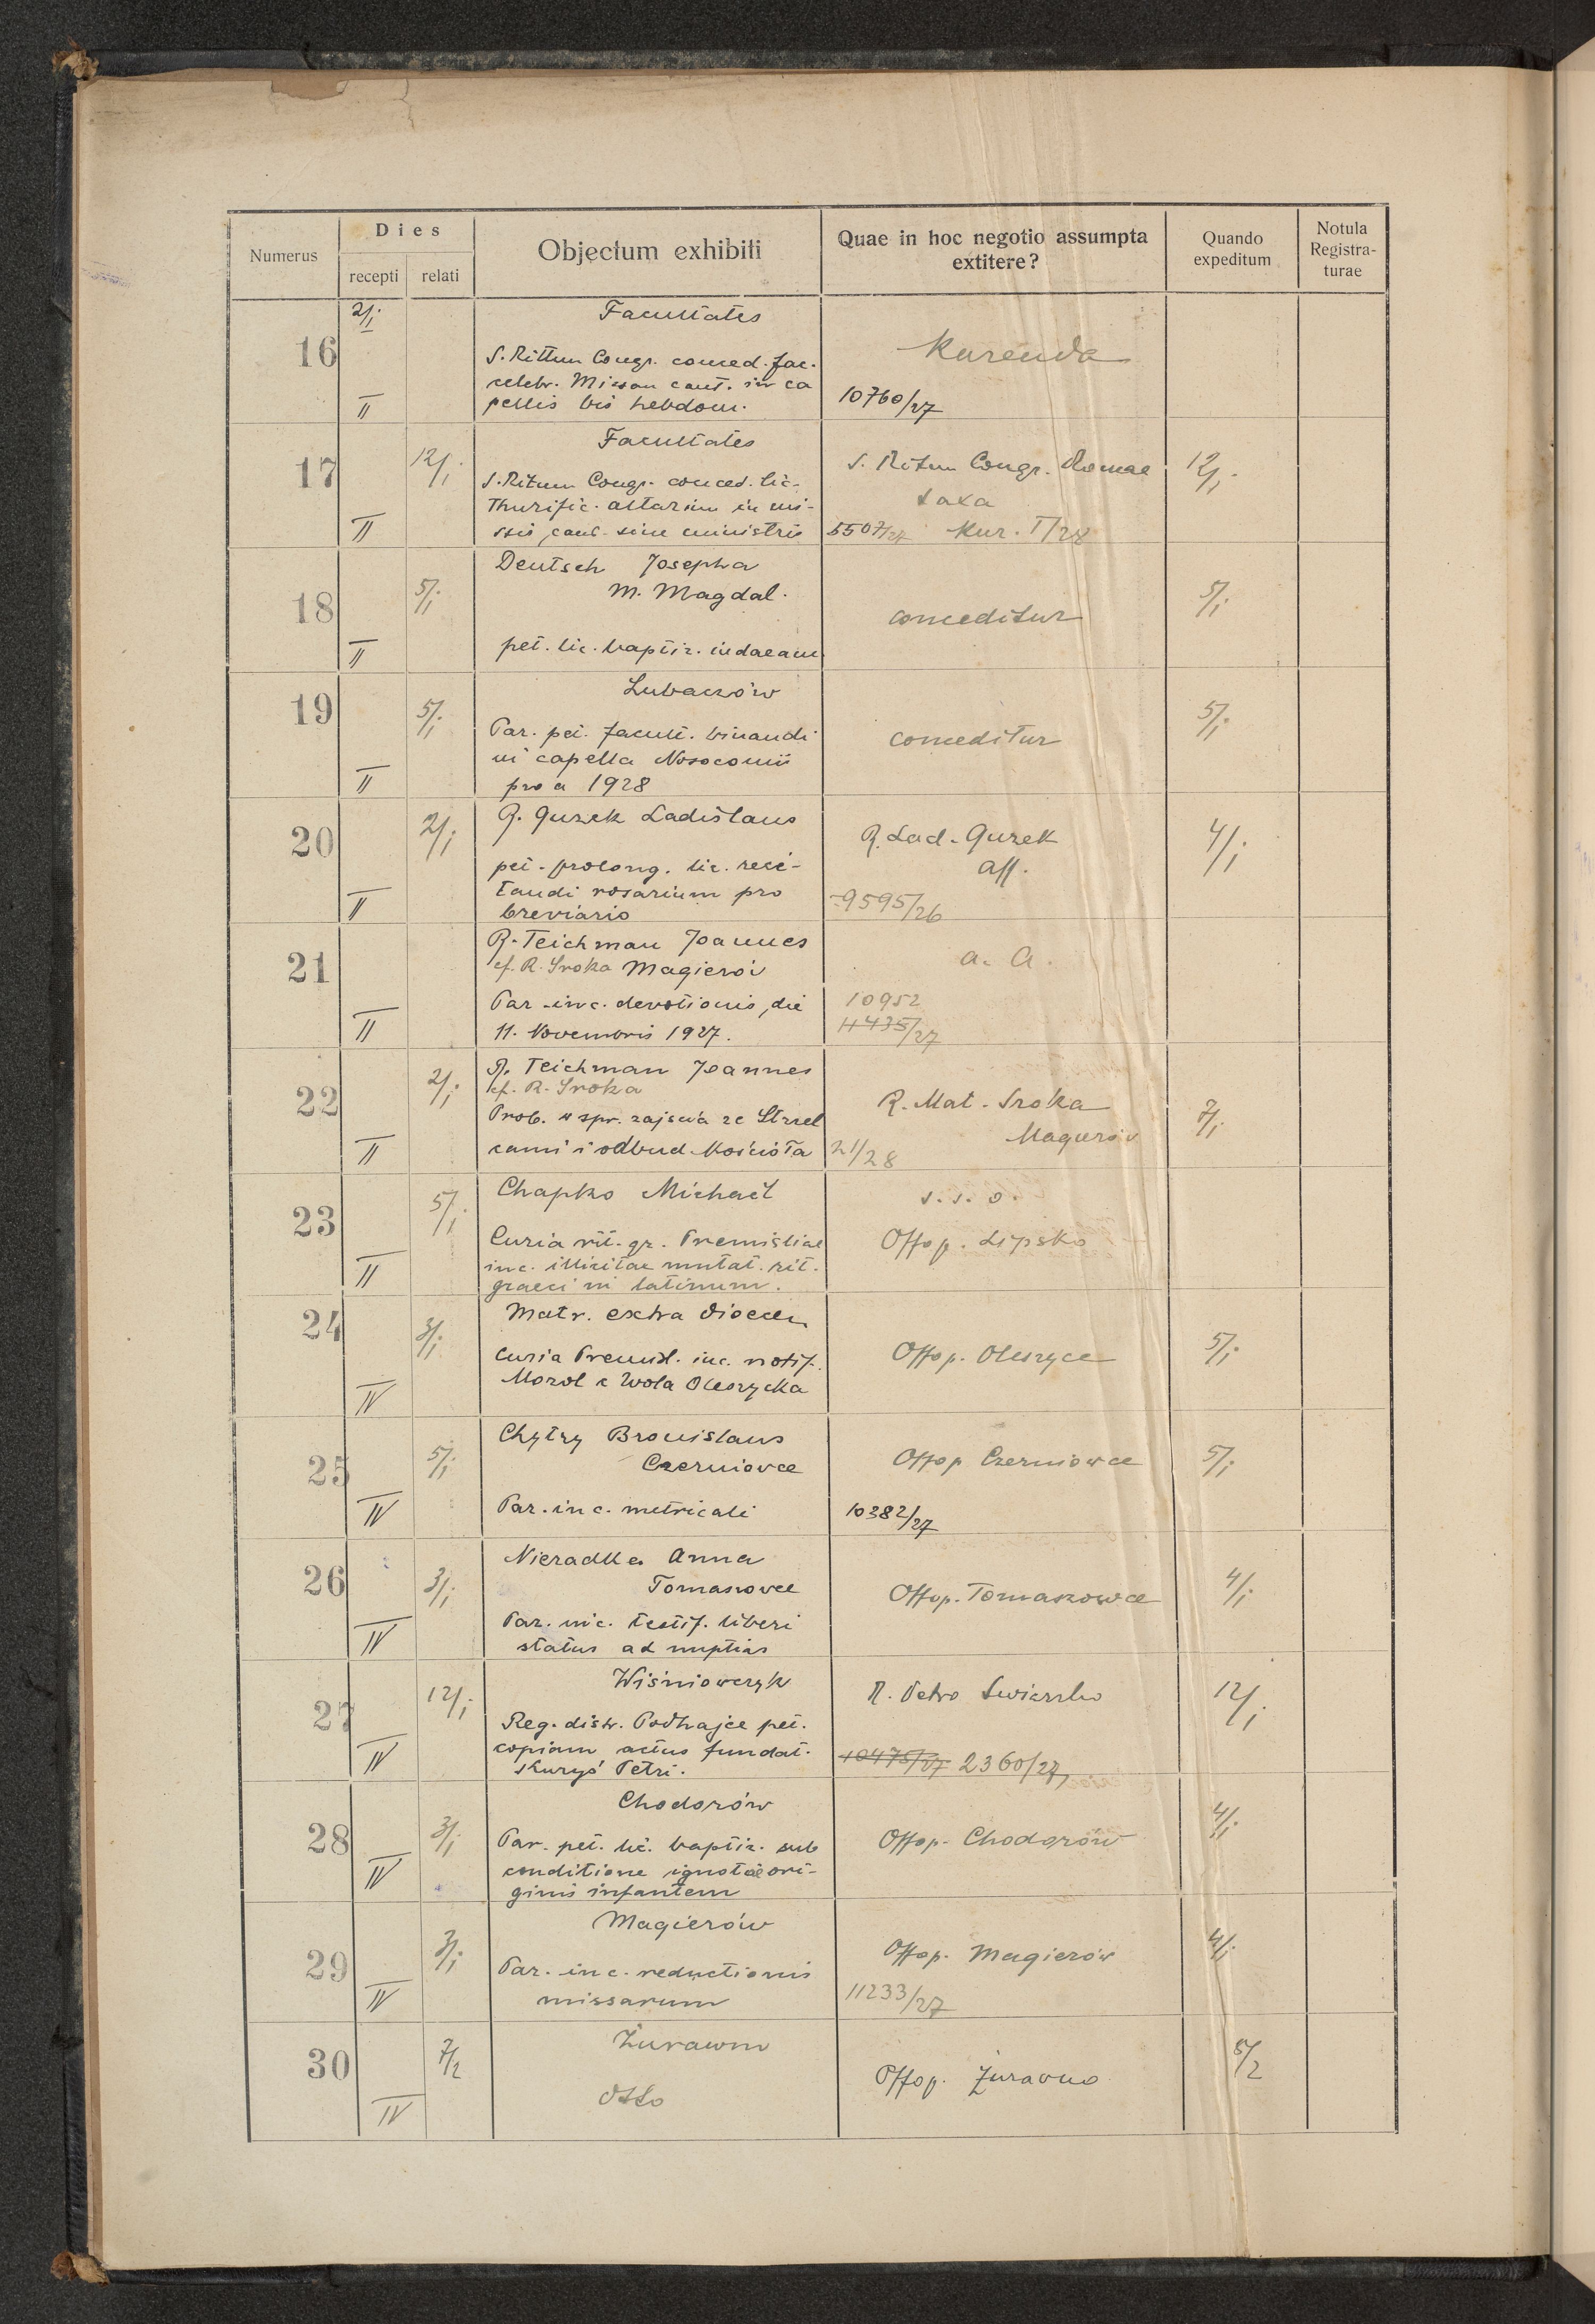 Numerus
Dies
recepti relati
Objectum exhibiti
Quae in hoc negotio assumpta
extitere?
Quando
expeditum
Notula
Registra-
turae
16
2/I
II
Facultates
S. Rittum Congr. conced. fac.
celebr. Missam cant. in ca
pellis bis hebdom.
Kurenda
10760/27
17
12/I
II
Facultates
S. Rituum Congr. conced. lic.
thurific. altarium in mi-
ssis cant. sine ministris
S. Rituum Congr. Romae
taxa
5507/27 Kur. I/28
12/I
18
5/I
II
Deutsch Josepha
M. Magdal.
pet. lic. baptiz. iudaeam
conceditur
5/I
19
5/I
II
Lubaczów
Par. pet. facult. binandi
in capella Nosocomii
pro a 1928
conceditur
5/I
20
2/I
II
R. Gurek Ladislaus
pet. prolong. lic. reci-
tandi rosarium pro
breviario
R. Lad. Gurek
aff.
9595/26
4/I
21
II
R. Teichman Joannes
cf. R. Sroka Magierów
Par. inc. devotionis, die
11. Novembris 1927.
a. a.
10952
11435/27
22
2/I
II
R. Teichman Joannes
cf. R. Sroka
Prob. w spr. zajścia ze Strzel
cami i odbud. Kościoła
R. Mat. Sroka
Magierów
21/28
7/I
23
5/I
II
Chapko Michaël
Curia rit. gr. Premisliae
inc. illicitae mutat. rit.
graeci in latinum.
s. s. o.
Offop. Lipsko
24
3/I
IV
Matr. extra dioecen
Curia Premisl. inc. notif.
Mozol e Wola Oleszycka
Offop. Oleszyce
5/I
25
5/I
IV
Chytry Bronislaus
Czerniowce
Par. inc. metricali
Offop Czerniowce
10382/27
5/I
26
3/I
IV
Nieradka Anna
Tomaszowce
Par. inc. testif. liberi
status ad nuptias
Offop. Tomaszowce
4/I
27
12/I
IV
Wiśniowczyk
Reg. distr. Podhajce pet.
copiam actus fundat.
Kuryś Petri.
R. Petro Świerzko
10475/27 2360/27
12/I
28
3/I
IV
Chodorów
Par. pet. lic. baptiz. sub
conditione ignotae ori-
ginis infantem
Offop. Chodorów
4/I
29
3/I
IV
Magierów
Par. inc. reductionis
missarum
Offop. Magierów
11233/27
4/I
30
7/2
IV
Żurawno
Otto
Offop. Żurawno
8/2